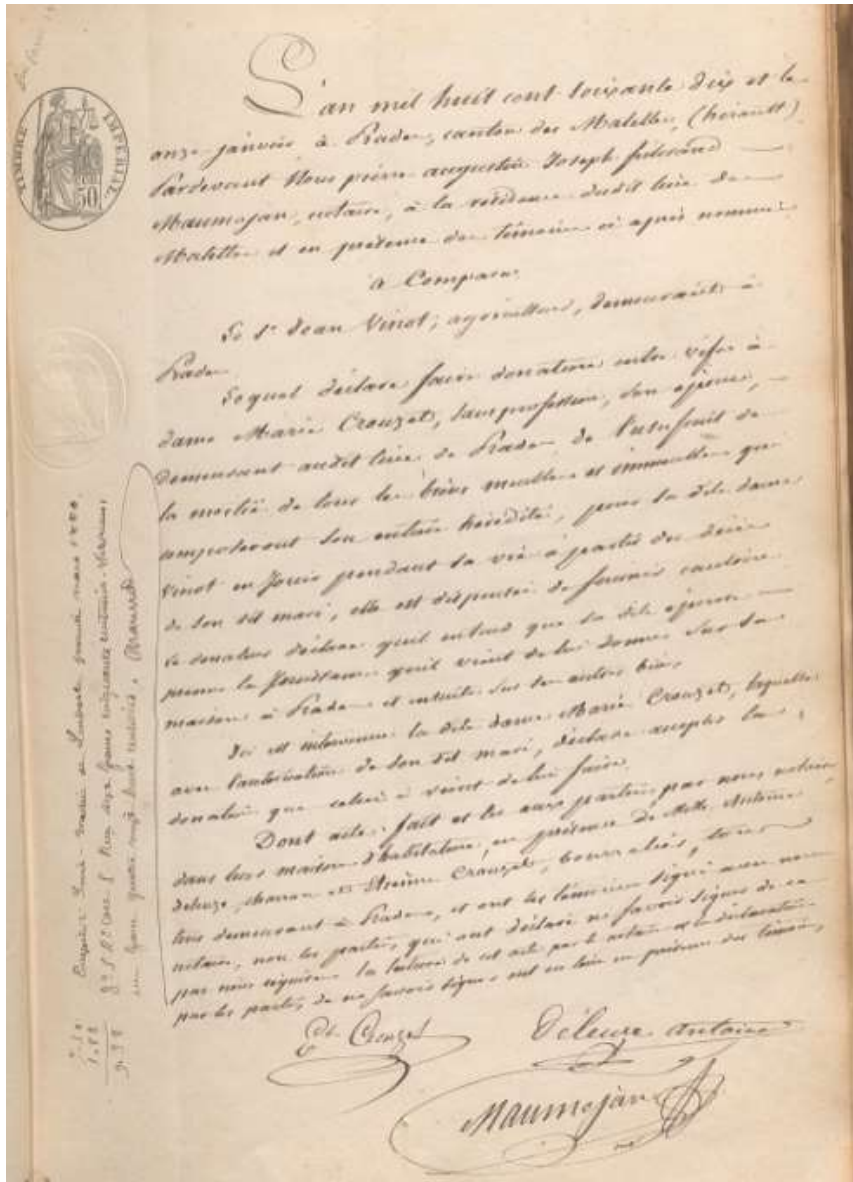 L'an mil huit cent soixante dix et le
onze janvier, à Prades, canton des Matelles, (hérault)
Pardevant Nous pierre augustin Joseph fulcrand
Maumejan, notaire, à la résidence dudit lieu des
Matelles et en présence des témoins ci après nommés
a Comparu
Le Sr Jean Vinot, agriculteur, demeurant à
Prades
Lequel déclare faire donation entre vifs à
dame Marie Crouzet, sans profession, son épouse,
demeurant audit lieu de Prades, de l'usufruit de
la moitié de tous les biens meubles et immeubles qui
composeront son entière hérédité, pour la dite dame
Vinot en Jouir pendant sa vie à partir du décès
de son dit mari, elle est dispensée de fournir caution
le donateur déclare qu'il entend que la dite épouse
prenne la Jouissance qu'il vient de lui donner sur sa
maison à Prades et ensuite sur ses autres biens
Ici est intervenue la dite dame Marie Crouzet, laquelle
avec l'autorisation de son dit mari, déclare accepter la
donation que celui ci vient de lui faire.
Dont acte. fait et lu aux parties par nous notaire
dans leur maison d'habitation, en présence de Antoine
Déleuze, charron et Crouzet, bourrelier, tous
deux demeurant à Prades, et ont les témoins signé avec nous
notaire, non les parties, qui ont déclaré ne savoir signer de ce
par nous requises. la lecture de cet acte par le notaire et la déclaration
par les parties de ne savoir signer ont eu lieu en présence des témoins,
Crouzet
Déleuze antoine
Maumejan
TIMBRE IMPÉRIAL
50